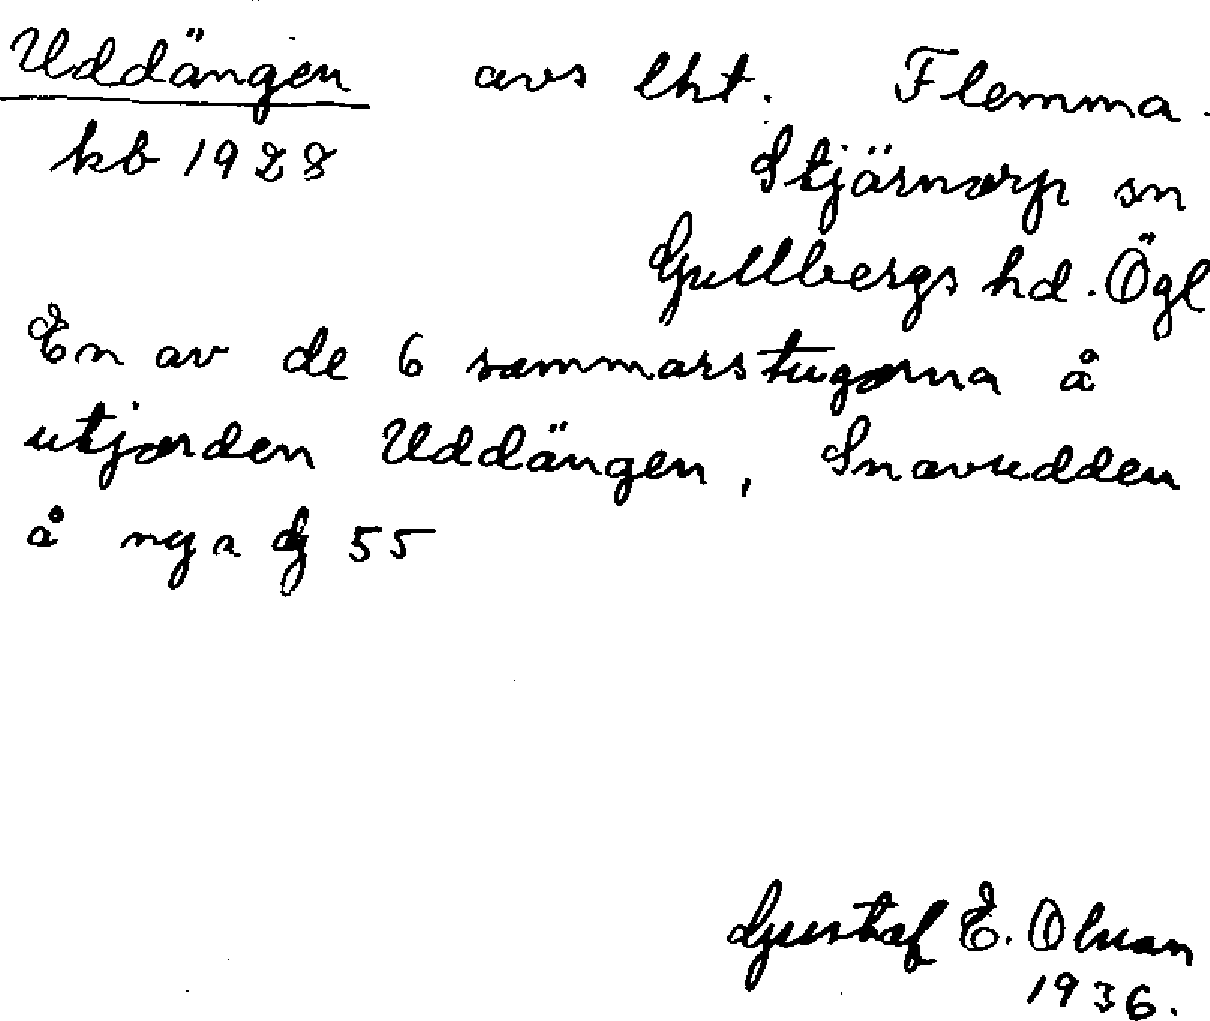 Uddängen avs lht. Flemma.
kb 1928 Stjärnorp sn
Gullbergs hd. Ögl
En av de 6 sommarstugorna å
utjorden Uddängen, Snavudden
å nya dj 55
Gustaf E. Olsson
1936.